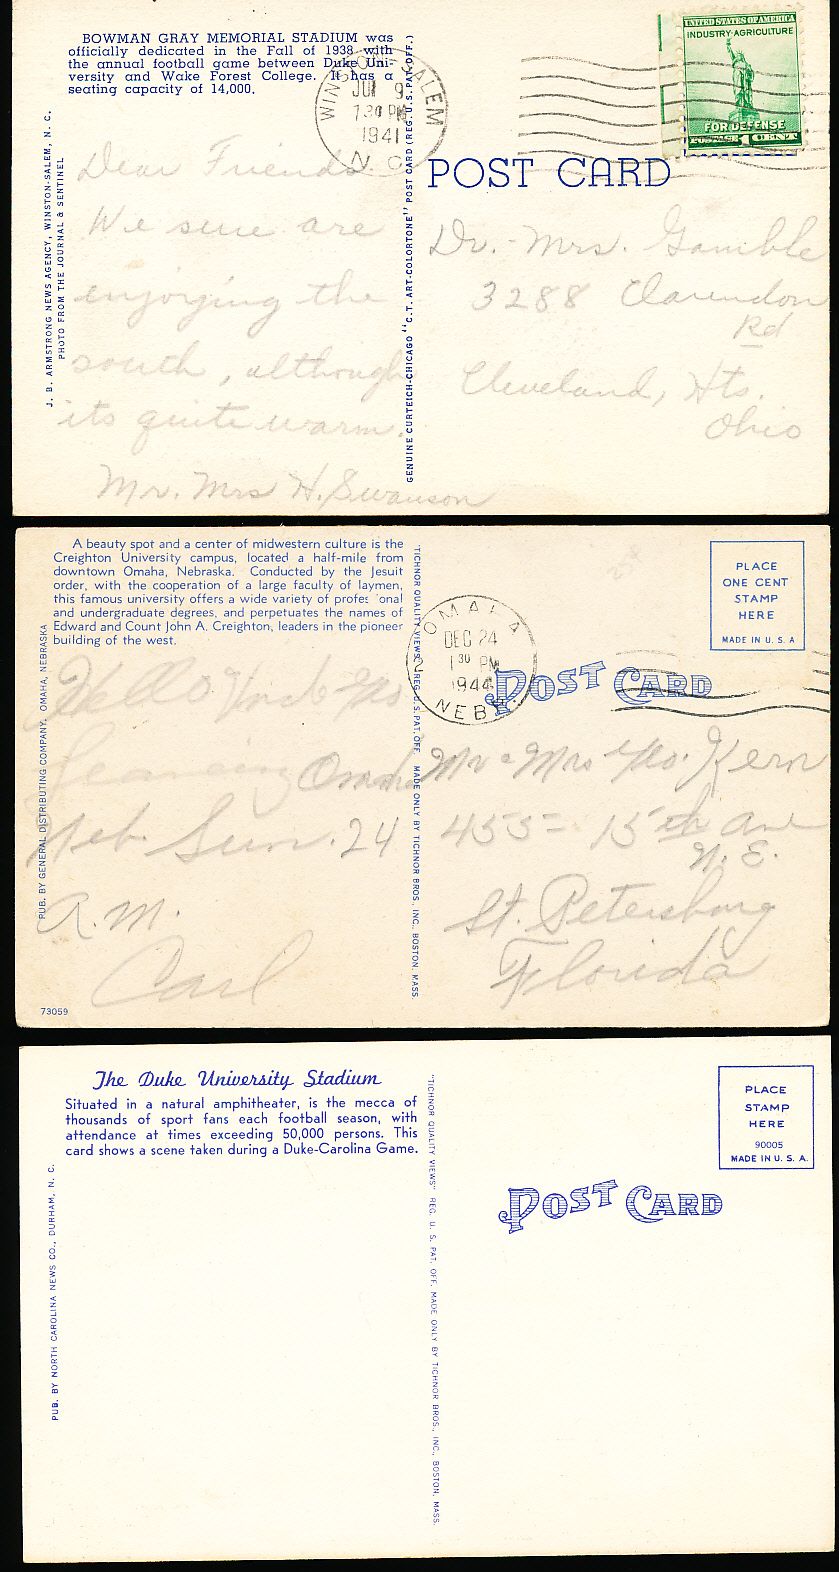 BOWMAN GRAY MEMORIAL STADIUM was
officially dedicated in the Fall of 1938 with
the annual football game between Duke Uni-
versity and Wake Forest College. It has a
seating capacity of 14,000.
J. B. ARMSTRONG NEWS AGENCY, WINSTON-SALEM, N. C.
PHOTO FROM THE JOURNAL & SENTINEL
WINSTON-SALEM
9
7 30 PM
1941
N. C.
GENUINE CURTEICH-CHICAGO "C. T. ART-COLORTONE" POST CARD (REG. U. S. PAT. OFF.)
UNITED STATES OF AMERICA
INDUSTRY·AGRICULTURE
FOR DEFENSE
POSTAGE 1 CENT
POST CARD
Dear Friends
We sure are
enjoying the
south, although
its quite warm.
Mr. Mrs H. Swanson
Dr. - Mrs. Gamble
3288 Clarendon
Rd
Cleveland, Hts.
Ohio
A beauty spot and a center of midwestern culture is the
Creighton University campus, located a half-mile from
downtown Omaha, Nebraska. Conducted by the Jesuit
order, with the cooperation of a large faculty of laymen,
this famous university offers a wide variety of profes ional
and undergraduate degrees, and perpetuates the names of
Edward and Count John A. Creighton, leaders in the pioneer
building of the west.
PUB. BY GENERAL DISTRIBUTING COMPANY, OMAHA, NEBRASKA
73059
"TICHNOR QUALITY VIEWS," REG. U. S. PAT. OFF. MADE ONLY BY TICHNOR BROS., INC., BOSTON, MASS.
OMAHA
DEC 24
1 30 PM
1944
NEBR.
2
PLACE
ONE CENT
STAMP
HERE
MADE IN U. S. A
POST CARD
Hello Uncle Geo
Leaving Omaha
Neb. Sun. 24
A. M.
Carl
Mr & Mrs Geo. Kern
455 - 15th Ave
N. E.
St. Petersburg
Florida
The Duke University Stadium
Situated in a natural amphitheater, is the mecca of
thousands of sport fans each football season, with
attendance at times exceeding 50,000 persons. This
card shows a scene taken during a Duke-Carolina Game.
PUB. BY NORTH CAROLINA NEWS CO., DURHAM, N. C.
"TICHNOR QUALITY VIEWS" REG. U. S. PAT. OFF. MADE ONLY BY TICHNOR BROS., INC., BOSTON, MASS.
PLACE
STAMP
HERE
90005
MADE IN U. S. A.
POST CARD